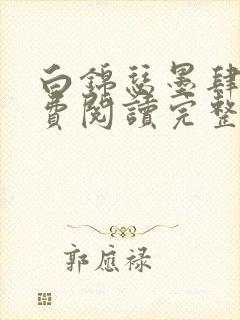 白錦瑟墨肆
費閱讀完整
郭應祿